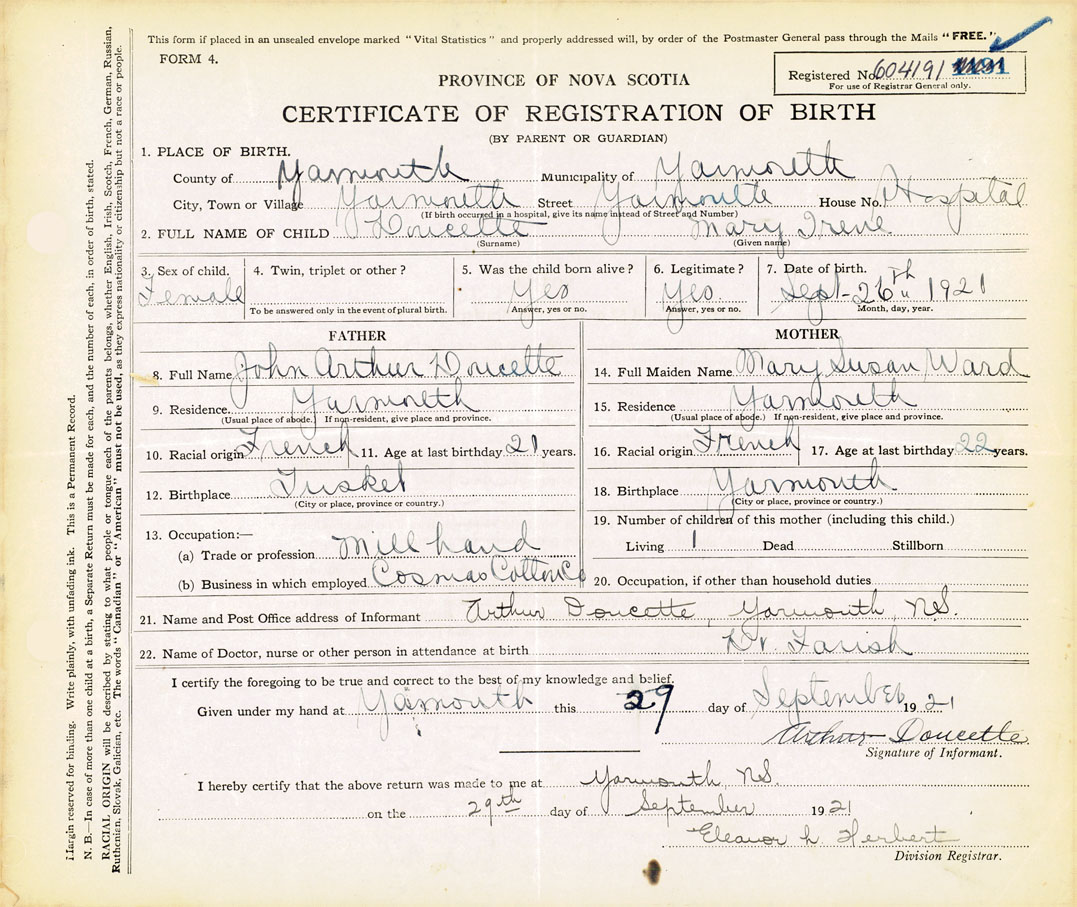 This form if placed in an unsealed envelope marked "Vital Statistics" and properly addressed will, by order of the Postmaster General pass through the Mails "FREE."
FORM 4.
PROVINCE OF NOVA SCOTIA
Registered No. 604191
For use of Registrar General only.
CERTIFICATE OF REGISTRATION OF BIRTH
(BY PARENT OR GUARDIAN)
1. PLACE OF BIRTH.
County of Yarmouth Municipality of Yarmouth
City, Town or Village Yarmouth Street Yarmouth House No. Hospital
(If birth occurred in a hospital, give its name instead of Street and Number)
2. FULL NAME OF CHILD Doucette Mary Irene
(Surname) (Given name)
3. Sex of child. 4. Twin, triplet or other? 5. Was the child born alive? 6. Legitimate? 7. Date of birth.
Female Yes Yes. Sept-26th 1921
To be answered only in the event of plural birth. Answer, yes or no. Answer, yes or no. Month, day, year.
FATHER MOTHER
8. Full Name John Arthur Doucette 14. Full Maiden Name Mary Susan Ward
9. Residence Yarmouth 15. Residence Yarmouth
(Usual place of abode.) If non-resident, give place and province. (Usual place of abode.) If non-resident, give place and province.
10. Racial origin French 11. Age at last birthday 21 years. 16. Racial origin French 17. Age at last birthday 22 years.
12. Birthplace Tusket 18. Birthplace Yarmouth
(City or place, province or country.) (City or place, province or country.)
13. Occupation:— 19. Number of children of this mother (including this child.)
(a) Trade or profession Mill hand Living 1 Dead Stillborn
(b) Business in which employed Cosmos Cotton Co 20. Occupation, if other than household duties
21. Name and Post Office address of Informant Arthur Doucette, Yarmouth, N.S.
22. Name of Doctor, nurse or other person in attendance at birth Dr. Farish
I certify the foregoing to be true and correct to the best of my knowledge and belief.
Given under my hand at Yarmouth this 29 day of September 1921
Arthur Doucette
Signature of Informant.
I hereby certify that the above return was made to me at Yarmouth, N.S.
on the 29th day of September 1921
Eleanor L. Herbert
Division Registrar.
Margin reserved for binding. Write plainly, with unfading ink. This is a Permanent Record.
N. B.—In case of more than one child at a birth, a Separate Return must be made for each, and the number of each, in order of birth, stated.
RACIAL ORIGIN will be described by stating to what people or tongue each of the parents belongs, whether English, Irish, Scotch, French, German, Russian,
Ruthenian, Slovak, Galician, etc. The words "Canadian" or "American" must not be used, as they express nationality or citizenship but not a race or people.